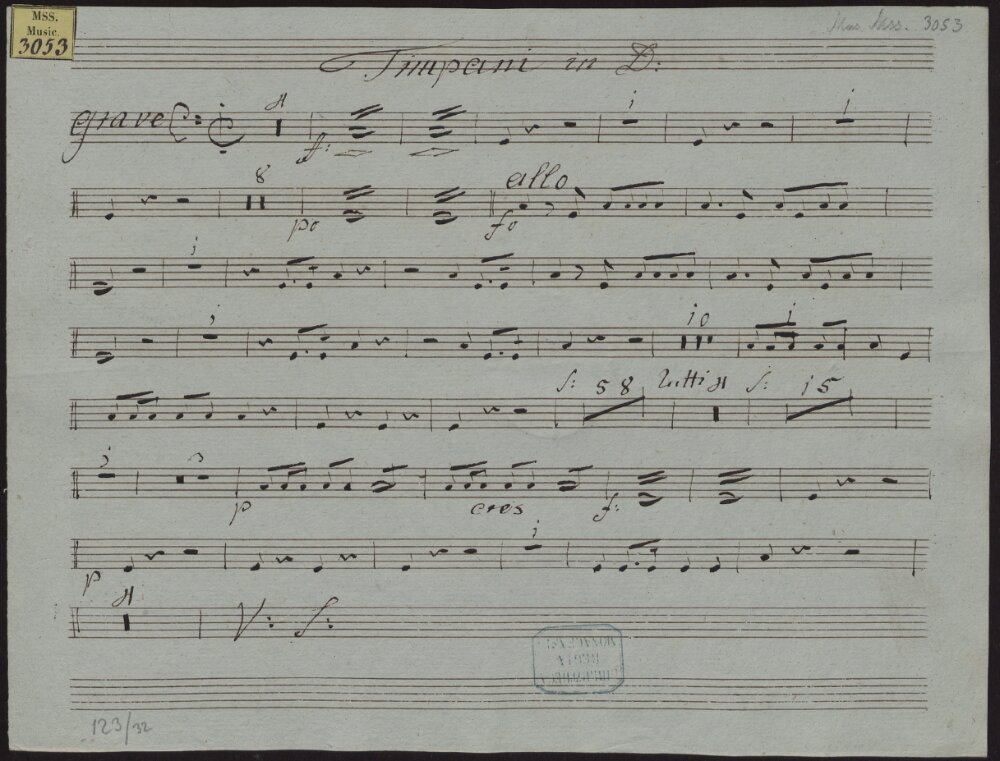 MSS.
Music.
3053
Mus. Mss. 3053
Timpani in D:
Grave
4
f:
i
i
8
po
allo
fo
i
i
i0
i
S: 58 Tutti 4 S: i5
i
p
cres
f:
p
i
4
V: S:
123/32